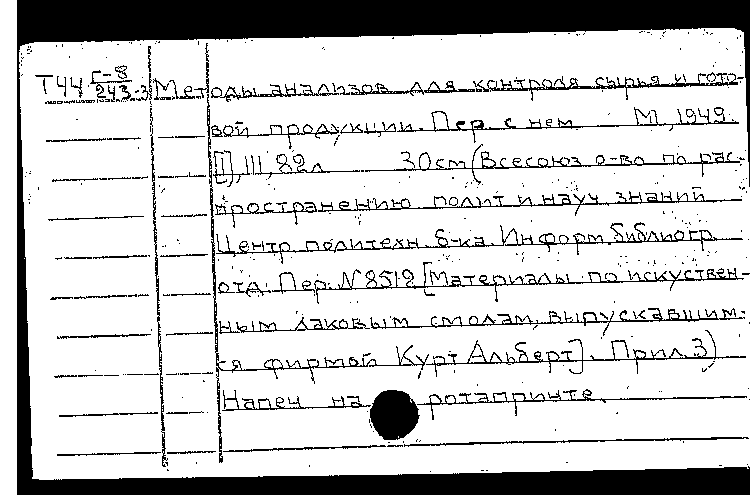 Т44 Г-8
243-3 Методы анализов для контроля сырья и гото-
вой продукции. Пер. с нем М., 1949.
[1], III, 82 л 30 см (Всесоюз о-во по рас-
пространению полит и науч знаний
Центр политехн. б-ка. Информ. библиогр.
отд. Пер. № 8512 [Материалы по искуствен-
ным лаковым смолам, выпускавшим-
ся фирмой Курт Альберт]. Прил. 3)
Напеч на ротапринте.